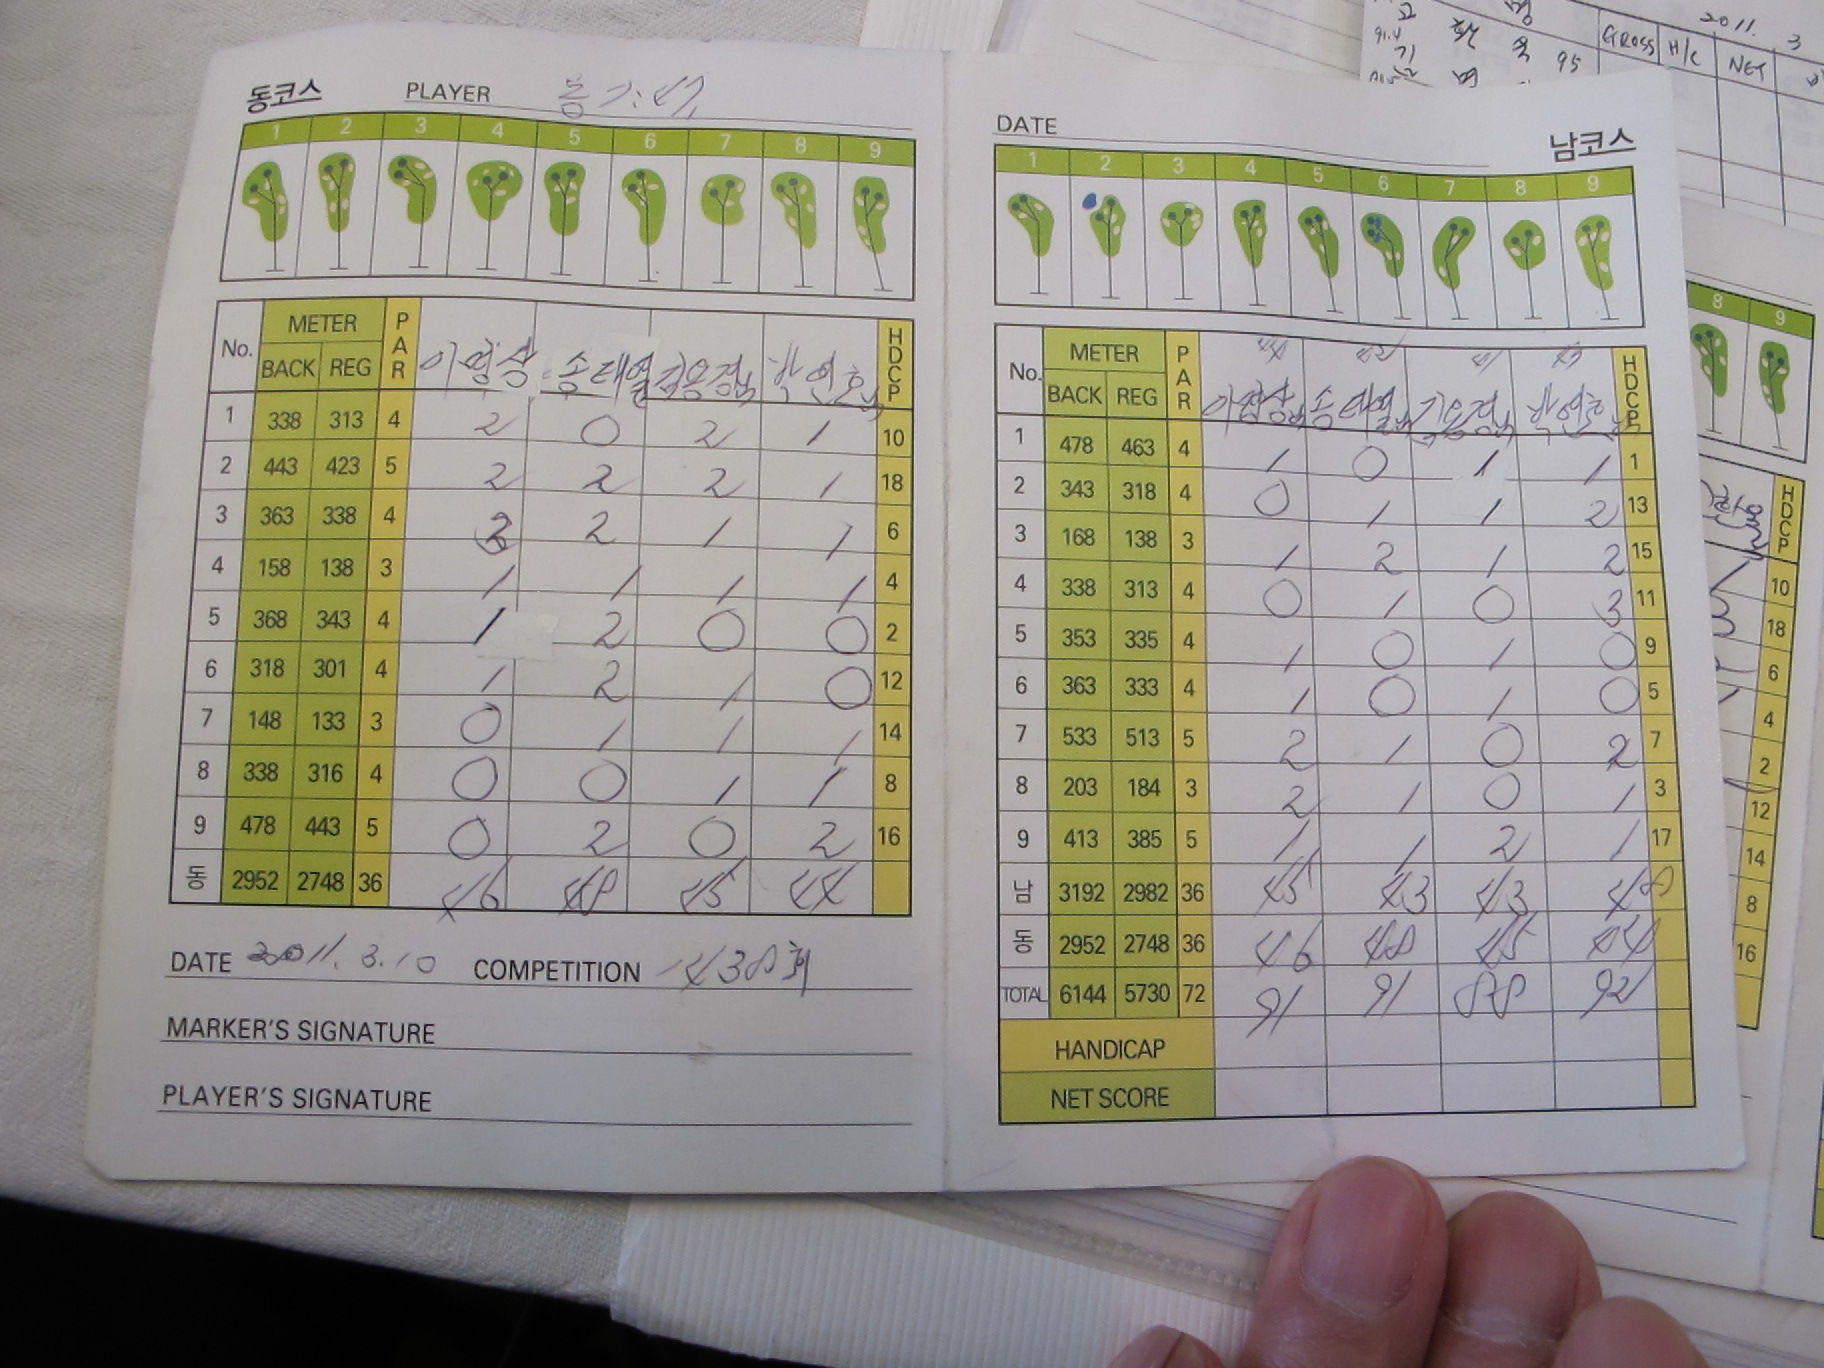 동코스 PLAYER
1 2 3 4 5 6 7 8 9
No. METER PAR 이영상 송태열 김용겸 박연호 HDCP
BACK REG
1 338 313 4 2 0 2 1 10
2 443 423 5 2 2 2 1 18
3 363 338 4 3 2 1 1 6
4 158 138 3 1 1 1 1 4
5 368 343 4 1 2 0 0 2
6 318 301 4 1 2 1 0 12
7 148 133 3 0 1 1 1 14
8 338 316 4 0 0 1 1 8
9 478 443 5 0 2 0 2 16
동 2952 2748 36 46 48 45 44
DATE 2011. 3. 10 COMPETITION 438회
MARKER'S SIGNATURE
PLAYER'S SIGNATURE
DATE 남코스
1 2 3 4 5 6 7 8 9
No. METER PAR 이영상 송태열 김용겸 박연호 HDCP
BACK REG
1 478 463 4 1 0 1 1 1
2 343 318 4 0 1 1 2 13
3 168 138 3 1 2 1 2 15
4 338 313 4 0 1 0 3 11
5 353 335 4 1 0 1 0 9
6 363 333 4 1 0 1 0 5
7 533 513 5 2 1 0 2 7
8 203 184 3 2 1 0 1 3
9 413 385 5 1 1 2 1 17
남 3192 2982 36 45 43 43 48
동 2952 2748 36 46 48 45 44
TOTAL 6144 5730 72 91 91 88 92
HANDICAP
NET SCORE
2011. 3
95 GROSS H/C NET
8 9
HDCP
10
18
6
4
2
12
14
8
16